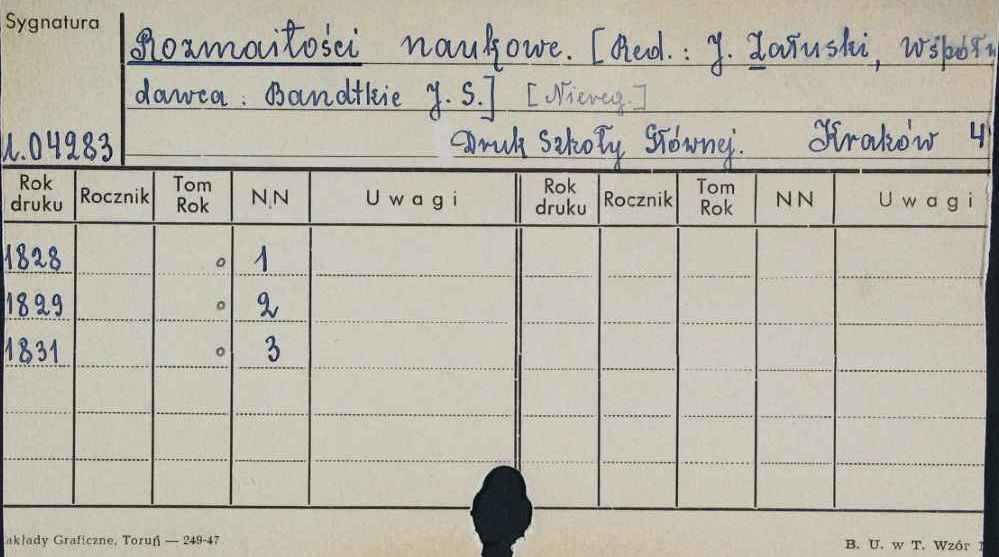 Sygnatura
Rozmaitości naukowe. [Red.: J. Załuski, Współwy
dawca: Bandtkie J. S.] [Niereg.]
04283 Druk Szkoły Głównej. Kraków 4
Rok druku Rocznik Tom Rok N.N Uwagi Rok druku Rocznik Tom Rok NN Uwagi
1828 o 1
1829 o 2
1831 o 3
akłady Graficzne, Toruń — 249-47 B. U. w T. Wzór